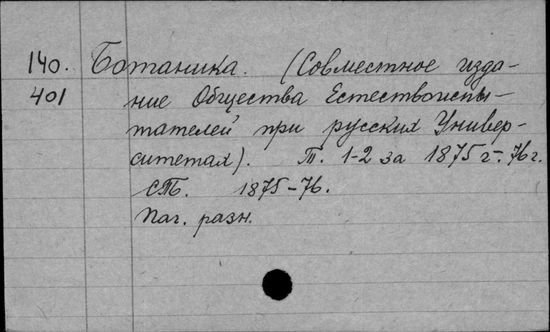 140. Ботаника. (Совместное изда-
401 ние Общества Естествоиспы-
тателей при русских Универ-
ситетах). Т. 1-2 за 1875 г.-76 г.
СПб. 1875-76.
Паг. разн.